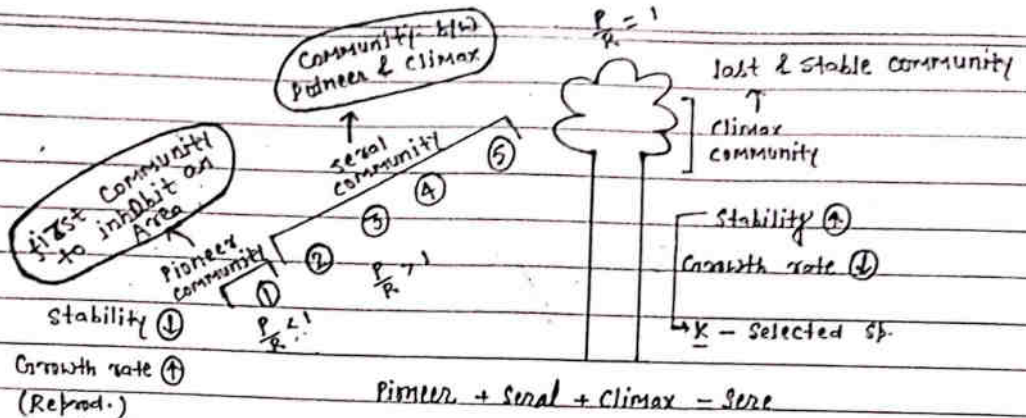 P/R = 1
Community b/w
Poineer & Climax
last & stable community
↑
Climax
community
seral
community
⑤
④
③
②
①
first community
to inhabit an
Area
Pioneer
community
P/R > 1
P/R < 1
Stability ↑
Growth rate ↓
K - Selected sp.
Stability ↓
Growth rate ↑
(Reprod.)
Pioneer + Seral + Climax - Sere